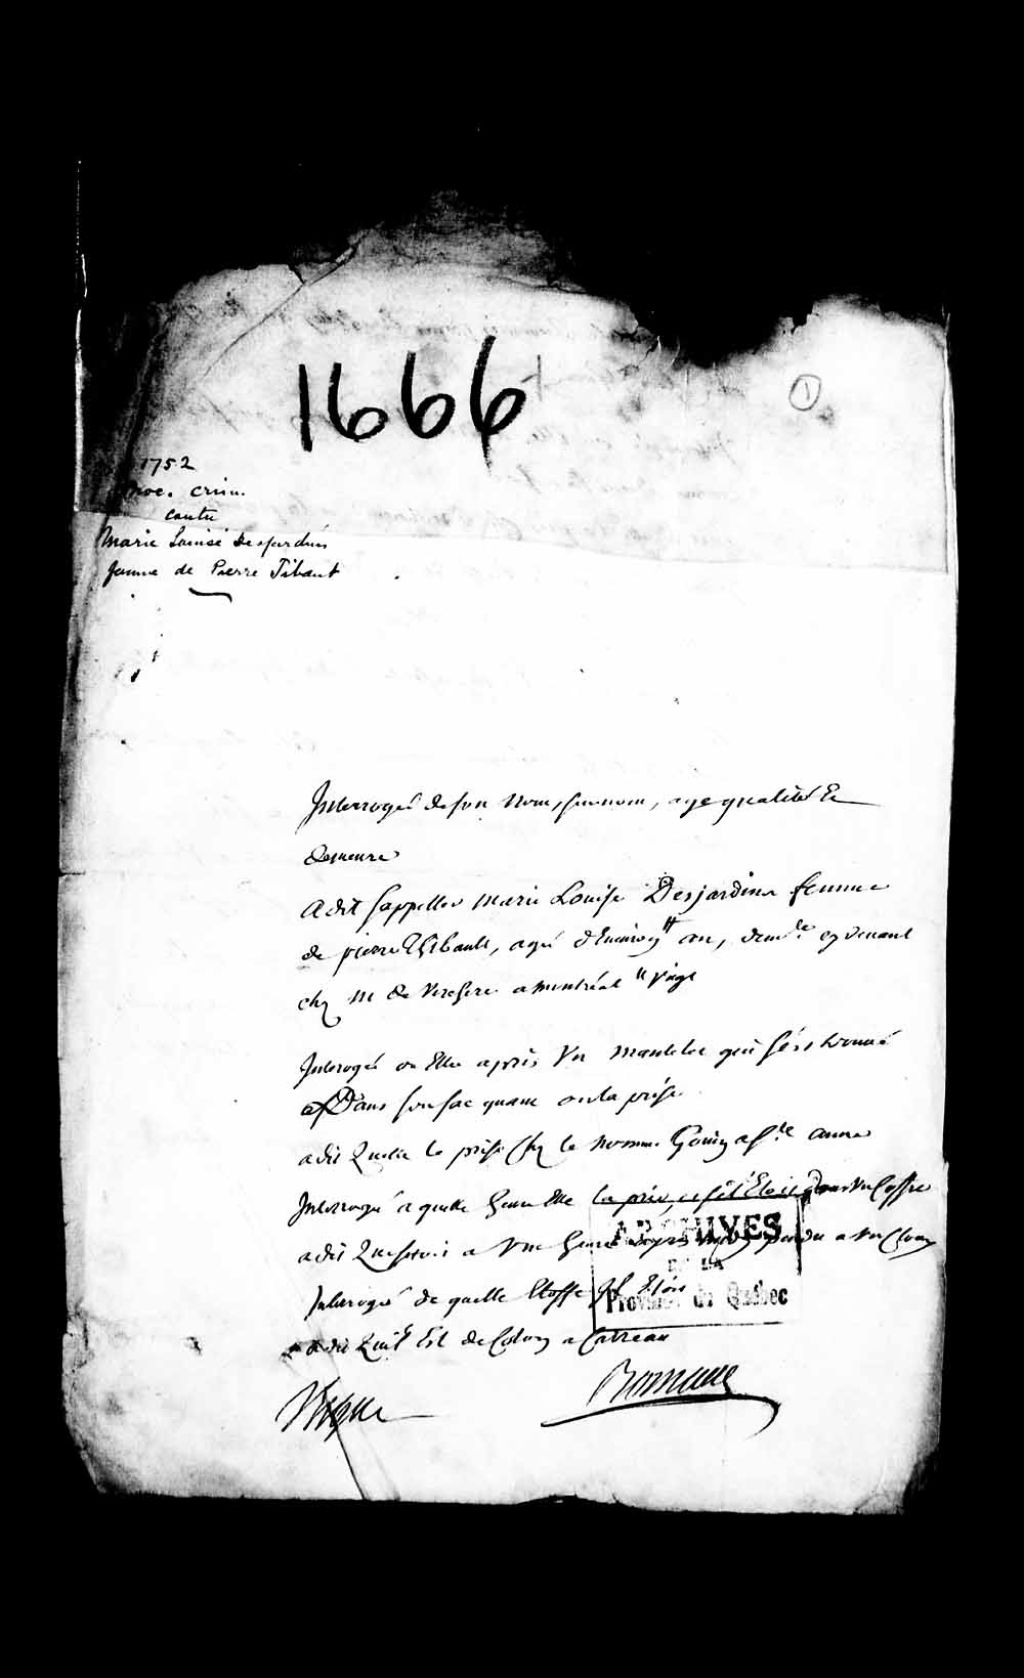 1666
1
1752
Proc. crim.
contre
Marie Louise Desjardins
femme de Pierre Tibaut
Interrogé de son nom, surnom, age qualité Et
demeure
a dit sappeller marie Louise Desjardins femme
de pierre Thibault, agé d'Environ an, dem.te cy devant
chez M de Verchere a montréal
Interogé ou Elle a pris Un mantelet qui sest trouvé
Dans son sac quand on la prise
a dit quelle la prise chez le nommé Gouin a s.te anne
Interrogé a quelle heure Elle la pris, et sil Etoit dans un coffre
a dit que
Interrogé de quelle Etoffe il Etoit
a dit quil Est de Coton a Carreau
ARCHIVES
DE LA
Province de Québec